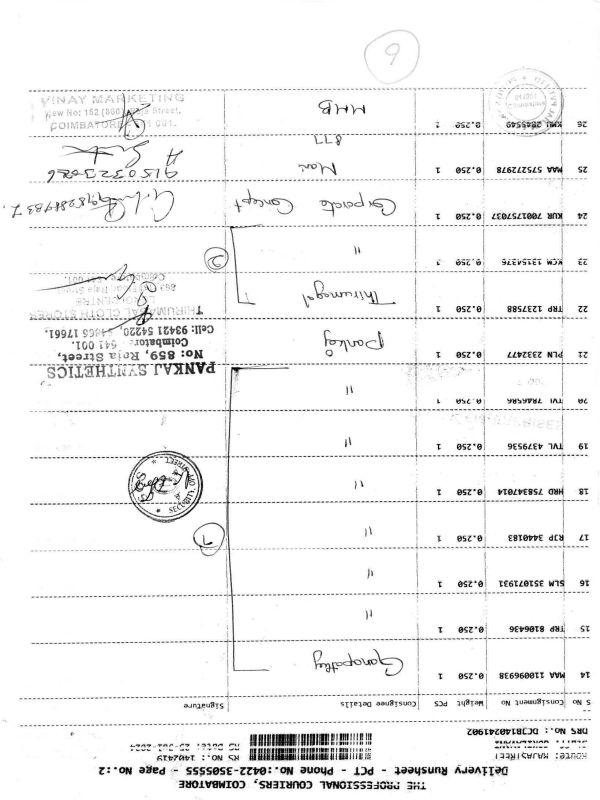 THE PROFESSIONAL COURIERS, COIMBATORE
Delivery Runsheet - PCT - Phone No.:0422-3505555 - Page No.:2
Route: RAJASTREET RS No.: 1402419
RS Date: 25-Jul-2024
DRS No.: DCJB140241902
S No Consignment No Weight PCS Consignee Details Signature
14 MAA 110096938 0.250 1 Ganapathy
15 TRP 8106436 0.250 1 "
16 SLM 351071931 0.250 1 "
17 RJP 3440183 0.250 1 " 7
18 HRD 758347014 0.250 1 "
SECURITY
19 TVL 4379536 0.250 1 "
20 TVL 7846586 0.250 1 "
21 PLN 2332477 0.250 1 Pankaj
PANKAJ SYNTHETICS
No: 859, Raja Street,
Coimbatore - 641 001.
Cell: 93421 54220, 94866 17661.
22 TRP 1237588 0.250 1 Thirumagal
THIRUMAGAL CLOTH STORES
23 KCM 13154376 0.250 1 " 2
24 KUR 7001757037 0.250 1 Corporate Concept
25 MAA 575272978 0.250 1 Mani 9150323026
877
26 KMU 0.250 1 MMB
VINAY MARKETING
New No: 152 Raja Street,
COIMBATORE - 641 001.
6